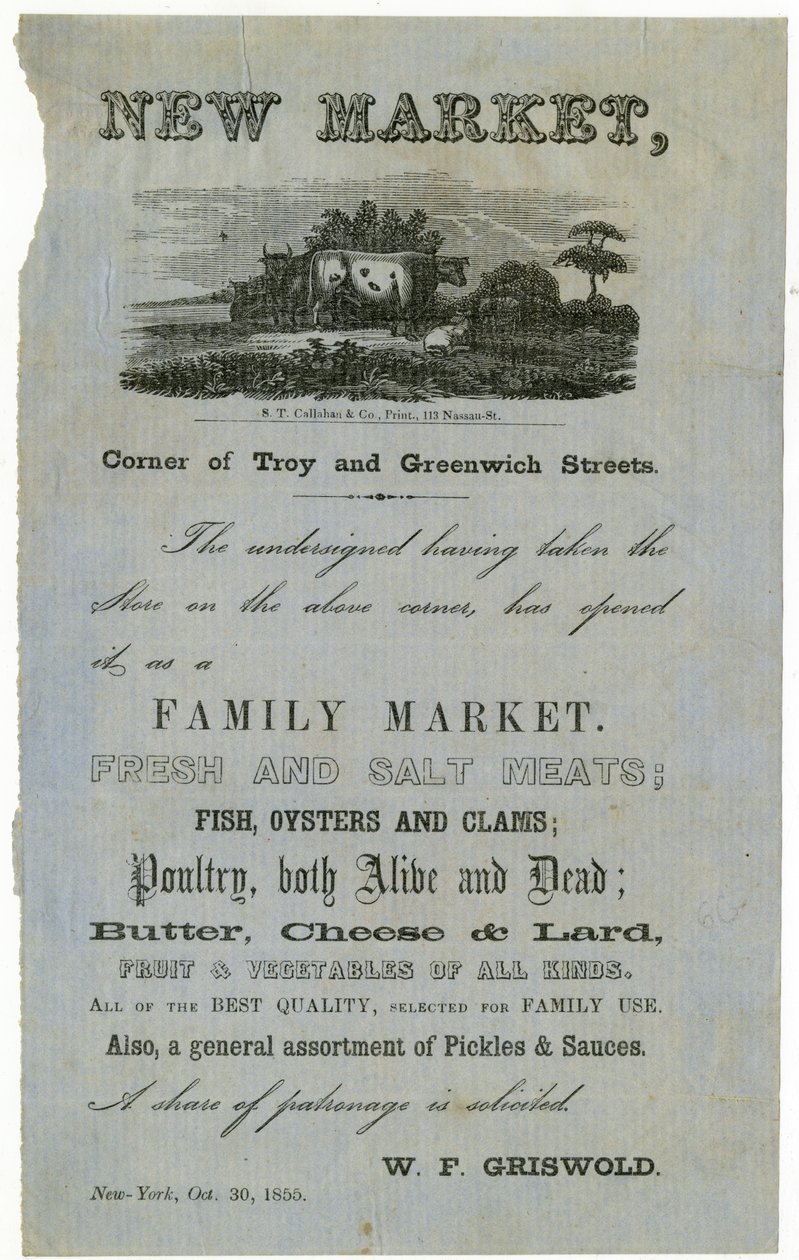 NEW MARKET,
S. T. Callahan & Co., Print., 113 Nassau-St.
Corner of Troy and Greenwich Streets.
The undersigned having taken the
Store on the above corner, has opened
it as a
FAMILY MARKET.
FRESH AND SALT MEATS;
FISH, OYSTERS AND CLAMS;
Poultry, both Alive and Dead;
Butter, Cheese & Lard,
FRUIT & VEGETABLES OF ALL KINDS.
ALL OF THE BEST QUALITY, SELECTED FOR FAMILY USE.
Also, a general assortment of Pickles & Sauces.
A share of patronage is solicited.
W. F. GRISWOLD.
New-York, Oct. 30, 1855.